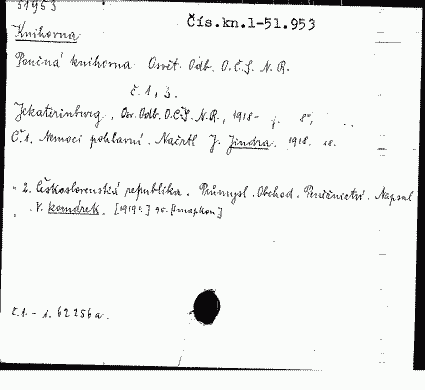 51953
Čís.kn.1-51.953
Knihovna
Poučná knihovna Osvět. Odb. O.Č.S. N.R.
č. 1, 3.
Jekaterinburg, Osv. Odb. O.Č.S. N.R., 1918- 8°,
Č. 1. Nemoci pohlavní. Načrtl J. Jindra. 1918.
" 2. Československá republika. Průmysl. Obchod. Peněžnictví. Napsal
V. Komárek. [1919?]
č.1. - 1. 62256a.